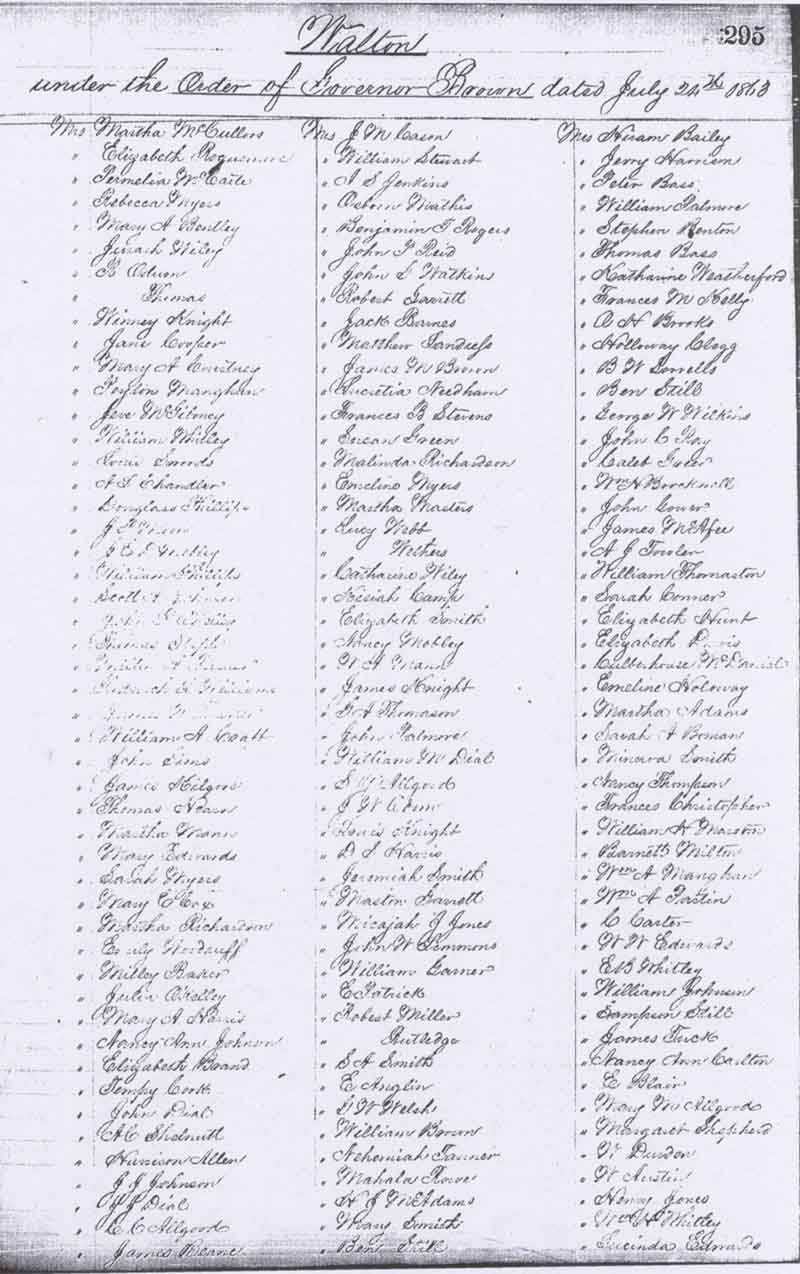 295
Walton
under the Order of Governor Brown dated July 24th 1863
Mrs Martha McCullors
" Elizabeth
" Permelia McCarte
" Rebecca Myers
" Mary A Bentley
" Wiley
" B
" Thomas
" Winney Knight
" Jane Cooper
" Mary A
" Peyton Manghan
" McGibney
" William Whitley
"
" A S Chandler
" Douglass Phillips
" J
"
" William Phillips
" Scott A Johnson
" John
" Thomas
"
" Williams
"
" William A
" John Sims
" James Kilgore
" Thomas Hearn
" Martha Mann
" Mary Edwards
" Sarah Myers
" Mary E Cox
" Martha Richardson
" Emily Woodruff
" Milley Baker
" Julia OKelley
" Mary A Harris
" Nancy Ann Johnson
" Elizabeth Brand
" Tempy Cook
" John Dial
" AC Shelnutt
" Harrison Allen
" J J Johnson
" Dial
" C C Allgood
" James Deane
Mrs J M Cason
" William Stewart
" Jenkins
" Osborn Mathis
" Benjamin T Rogers
" John P Reid
" John S Watkins
" Robert Garrett
" Jack Barnes
" Matthew
" James M Brown
" Lucretia Needham
" Frances B Stevens
" Susan Green
" Malinda Richardson
" Emeline Myers
" Martha Masters
" Lucy Webb
" Wethers
" Catharine Wiley
" Kesiah Camp
" Elizabeth Smith
" Nancy Mobley
" W A Mann
" James Knight
" Thomason
" John Palmore
" William M Dial
" Allgood
" J W
" Lewis Knight
" D S Harris
" Jeremiah Smith
" Maston Garrett
" Micajah J Jones
" John W Simmons
" William Garner
" E Patrick
" Robert Miller
" Rutledge
" S A Smith
" E Anglin
" Welsh
" William Brown
" Nehemiah Tanner
" Mahala Rowe
" H J McAdams
" Mary Smith
" Ben Still
Mrs Hiram Bailey
" Jerry Harrison
" Peter Bass
" William Palmore
" Stephen Benton
" Thomas Bass
" Katharine Weatherford
" Frances M Kelly
" A H Brooks
" Holloway Clegg
" B W Sorrells
" Ben Still
" George W Wilkins
" John C Ray
" Caleb
" Wm H Brocknell
" John
" James McAfee
" A J Towler
" William Thomaston
" Sarah Conner
" Elizabeth Hunt
" Elizabeth
" Culberhouse McDaniel
" Emeline Holoway
" Martha Adams
" Sarah A Boman
" Minerva Smith
" Nancy Thompson
" Frances Christopher
" William H
" Barnett Milton
" Wm A Manghan
" Wm A Partin
" C Carter
" W W Edwards
" E B Whitley
" William Johnson
" Sampson Still
" James Tuck
" Nancy Ann Carlton
" E Blair
" Mary M Allgood
" Margaret Shepherd
" W Durdon
" W Austin
" Henry Jones
" Wm H Whitley
" Lucinda Edwards